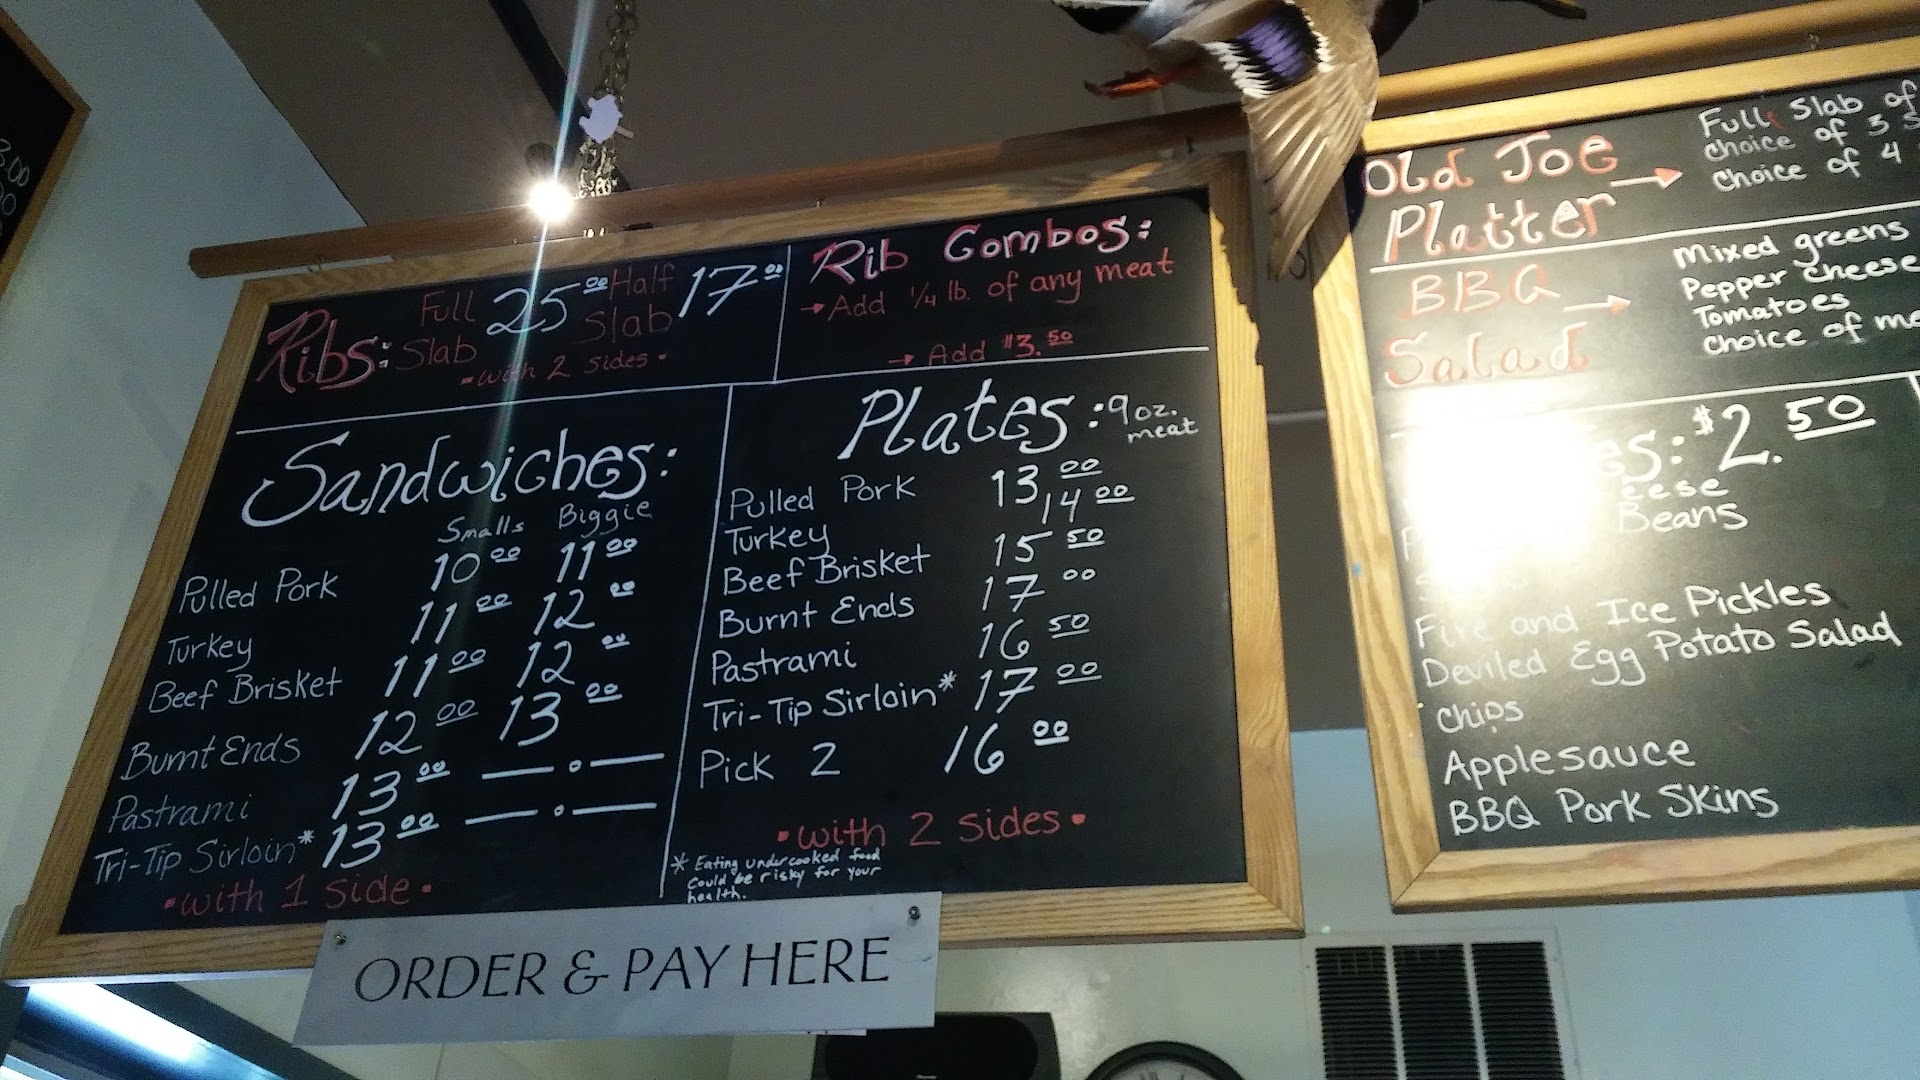 3.00
Ribs: Full Slab 25.00 Half Slab 17.00
•with 2 sides•
Rib Combos:
→Add 1/4 lb. of any meat
→ Add $3.50
Sandwiches:
Smalls Biggie
Pulled Pork 10.00 11.00
Turkey 11.00 12.00
Beef Brisket 11.00 12.00
Burnt Ends 12.00 13.00
Pastrami 13.00 — • —
Tri-Tip Sirloin* 13.00 — • —
•with 1 side•
Plates: 9 oz. meat
Pulled Pork 13.00
Turkey 14.00
Beef Brisket 15.50
Burnt Ends 17.00
Pastrami 16.50
Tri-Tip Sirloin* 17.00
Pick 2 16.00
•with 2 sides•
* Eating undercooked food
could be risky for your
health.
ORDER & PAY HERE
Old Joe
Platter →
Full Slab of
choice of 3
choice of 4
BBQ
Salad →
Mixed greens
Pepper cheese
Tomatoes
choice of
$2.50
Beans
Fire and Ice Pickles
Deviled Egg Potato Salad
Chips
Applesauce
BBQ Pork Skins